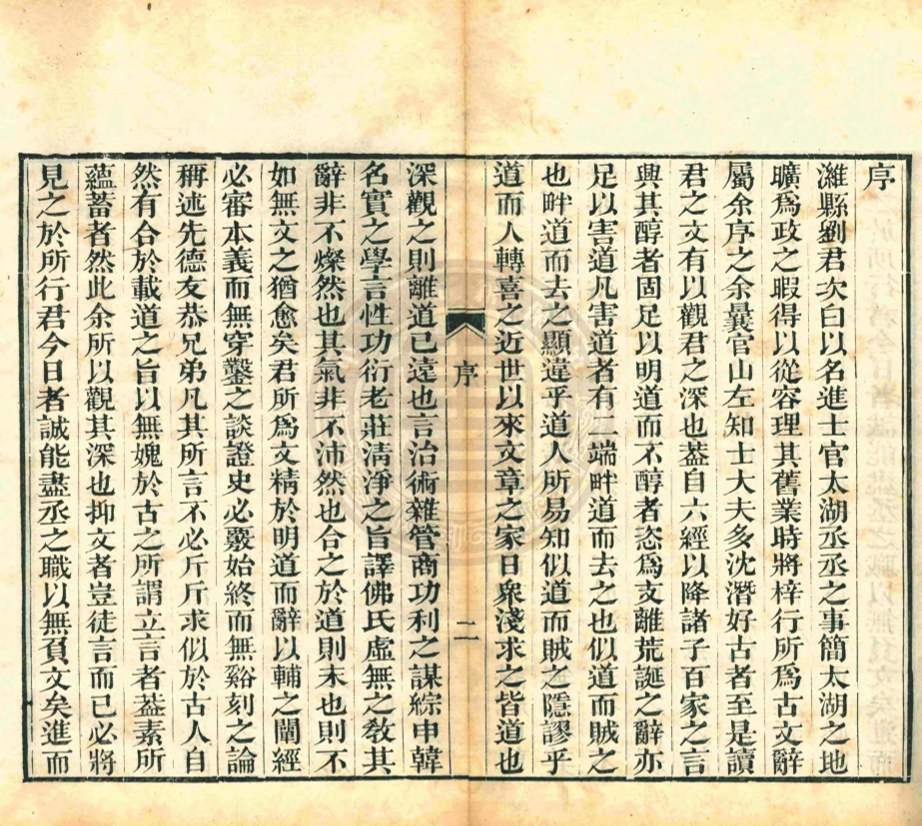 序
濰縣劉君次白以名進士官太湖丞丞之事簡太湖之地
曠爲政之暇得以從容理其舊業時將梓行所爲古文辭
屬余序之余曩官山左知士大夫多沈潛好古者至是讀
君之文有以觀君之深也葢自六經以降諸子百家之言
興其醇者固足以明道而不醇者恣爲支離荒誕之辭亦
足以害道凡害道者有二端畔道而去之也似道而賊之
也畔道而去之顯違乎道人所易知似道而賊之隱謬乎
道而人轉喜之近世以來文章之家日衆淺求之皆道也
序
二
深觀之則離道已遠也言治術雜管商功利之謀綜申韓
名實之學言性功衍老莊淸淨之旨譯佛氏虛無之敎其
辭非不燦然也其氣非不沛然也合之於道則末也則不
如無文之猶愈矣君所爲文精於明道而辭以輔之闡經
必審本義而無穿鑿之談證史必覈始終而無谿刻之論
稱述先德友恭兄弟凡其所言不必斤斤求似於古人自
然有合於載道之旨以無媿於古之所謂立言者葢素所
蘊蓄者然此余所以觀其深也抑文者豈徒言而已必將
見之於所行君今日者誠能盡丞之職以無負文矣進而